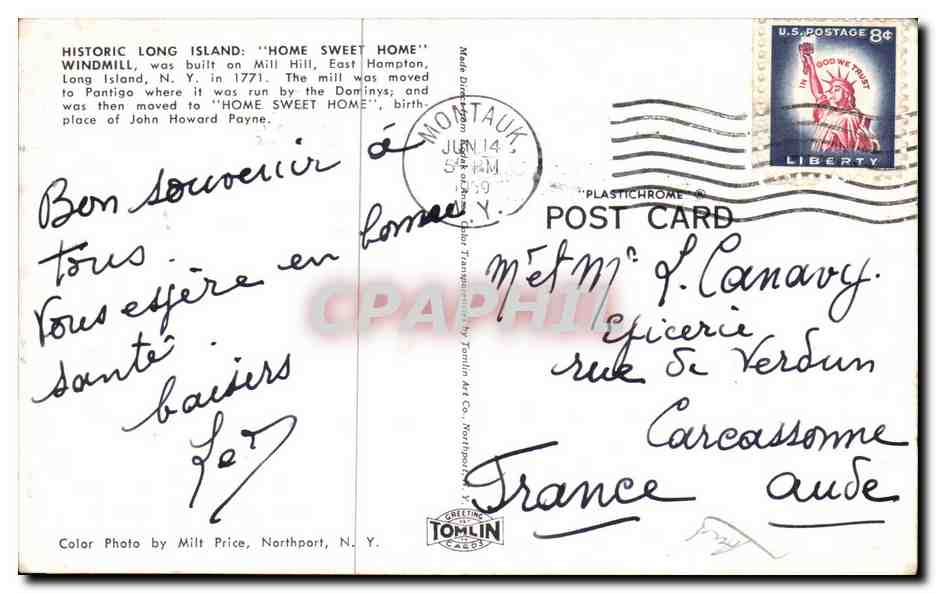 HISTORIC LONG ISLAND: "HOME SWEET HOME"
WINDMILL, was built on Mill Hill, East Hampton,
Long Island, N. Y. in 1771. The mill was moved
to Pantigo where it was run by the Dominys; and
was then moved to "HOME SWEET HOME", birth-
place of John Howard Payne.
Bon souvenir à
tous.
Vous espère en bonne
santé.
baisers
Color Photo by Milt Price, Northport, N. Y.
Made Direct from Kodak or Ansco Color Transparencies by Tomlin Art Co., Northport, N. Y.
GREETING
TOMLIN
CARDS
MONTAUK
JUN 14
5 PM
N.Y.
U.S. POSTAGE 8¢
IN GOD WE TRUST
LIBERTY
"PLASTICHROME" ®
POST CARD
M et Me L. Canavy.
Epicerie
rue de Verdun
Carcassonne
France Aude
CPAPHIL